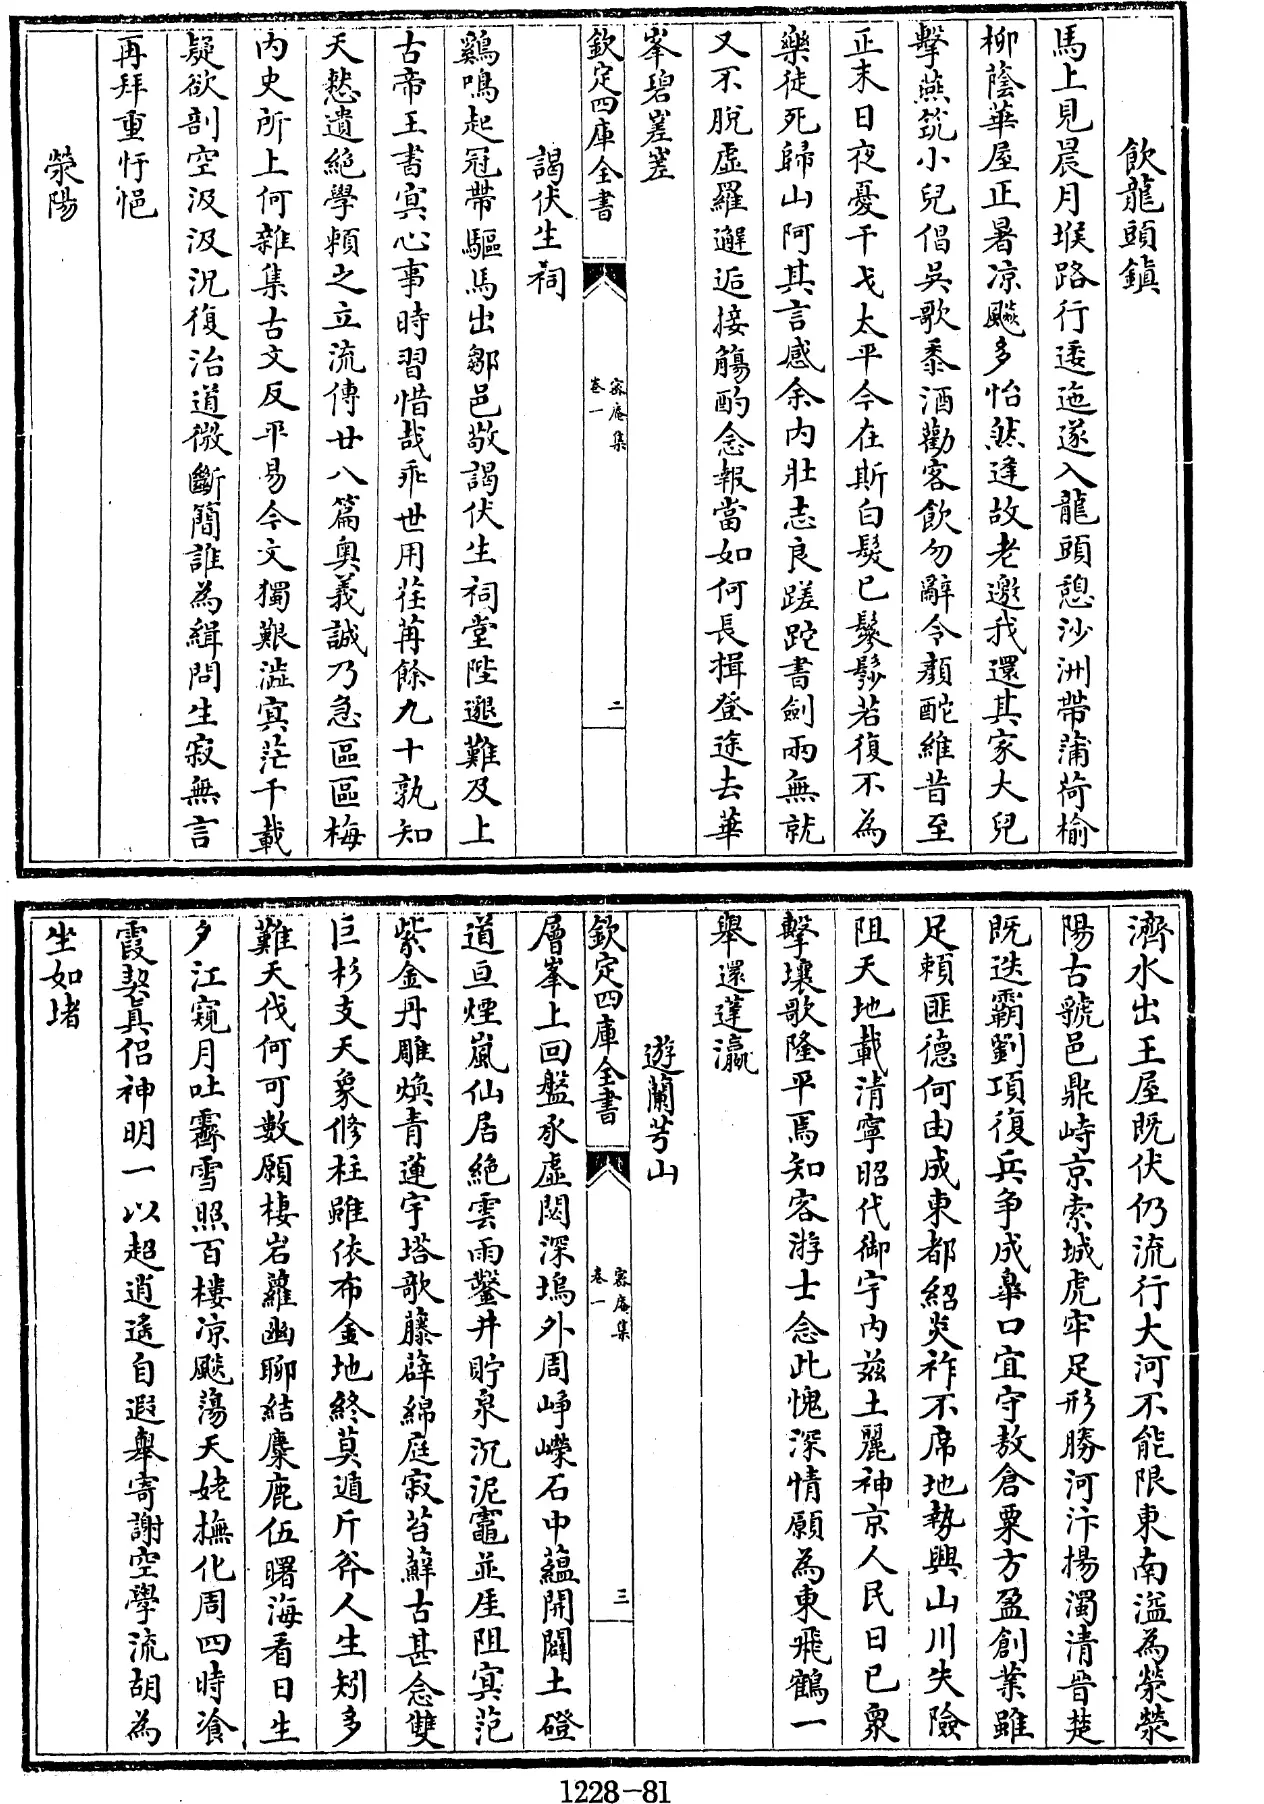 飲龍頭鎮
馬上見晨月堠路行逶迤遂入龍頭憩沙洲帶蒲荷榆
柳蔭華屋正暑凉飈多怡然逢故老邀我還其家大兒
擊燕筑小兒倡吳歌黍酒勸客飲勿辭令顏酡維昔至
正末日夜憂干戈太平今在斯白髮已鬖髿若復不為
樂徒死歸山阿其言感余内壯志良蹉跎書劍兩無就
又不脫虛羅邂逅接觴酌念報當如何長揖登途去華
峯碧嵳嵳
欽定四庫全書
宻庵集
卷一
二
謁伏生祠
鷄鳴起冠帶驅馬出鄒邑敬謁伏生祠堂陛邈難及上
古帝王書寞心事時習惜哉乖世用荏苒餘九十孰知
天慭遺絶學賴之立流傳廿八篇奥義誠乃急區區梅
内史所上何雜集古文反平易今文獨艱澁寞茫千載
疑欲剖空汲汲況復治道微斷簡誰為緝問生寂無言
再拜重忓悒
滎陽
濟水出王屋既伏仍流行大河不能限東南溢為滎滎
陽古虢邑鼎峙京索城虎牢足形勝河汴揚濁清晉楚
既迭霸劉項復兵争成臯口宜守敖倉粟方盈創業雖
足賴匪德何由成東都紹炎祚不席地勢興山川失險
阻天地載清寧昭代御宇内兹土麗神京人民日已衆
擊壤歌隆平焉知客游士念此愧深情願為東飛鶴一
舉還蓬瀛
遊蘭芎山
欽定四庫全書
宻庵集
卷一
三
層峯上回盤承虛閟深塢外周峥嶸石中蘊開闢土磴
道亘煙嵐仙居絶雲雨鑿井貯泉沉泥竈並厓阻寞范
紫金丹雕煥青蓮宇塔歌藤薜綿庭寂苔蘚古甚念雙
巨杉支天象修柱雖依布金地終莫遁斤斧人生矧多
難天伐何可數願棲岩蘿幽聊結麋鹿伍曙海看日生
夕江窺月吐霽雪照百樓凉颷蕩天姥撫化周四時飡
霞契真侣神明一以超逍遥自遐舉寄謝空學流胡為
坐如堵
1228-81